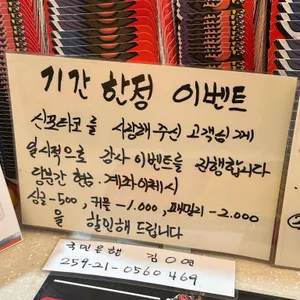 기간 한정 이벤트
신포타코를 사랑해 주신 고객님께
일시적으로 감사 이벤트를 진행합니다
당분간 현금·계좌이체시
싱글-500, 커플-1.000, 패밀리-2.000
을 할인해 드립니다
국민은행 김O연
259-21-0560 469